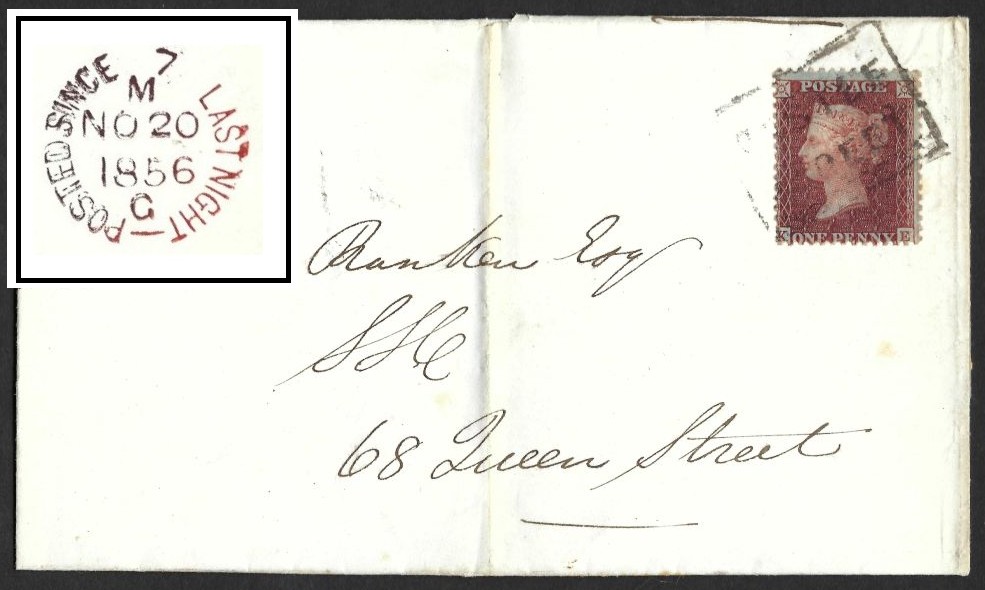 POSTED SINCE LAST NIGHT
7
M
NO 20
1856
C
POSTAGE
ONE PENNY
K E
Ranken Esq
SSC
68 Queen Street